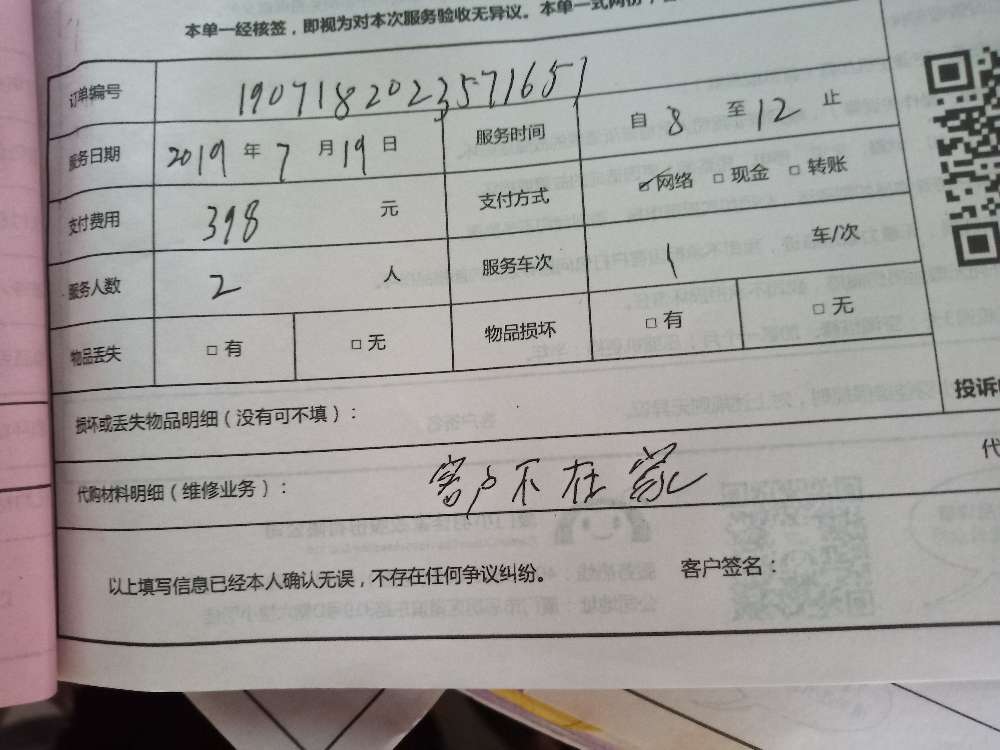 本单一经核签，即视为对本次服务验收无异议。本单一式两份，
订单编号 1907182023571651
服务日期 2019 年 7 月 19 日 服务时间 自 8 至 12 止
支付费用 398 元 支付方式 ☑ 网络 □ 现金 □ 转账
服务人数 2 人 服务车次 1 车/次
物品丢失 □ 有 □ 无 物品损坏 □ 有 □ 无
投诉
损坏或丢失物品明细（没有可不填）：
代
代购材料明细（维修业务）： 客户不在家
以上填写信息已经本人确认无误，不存在任何争议纠纷。 客户签名：